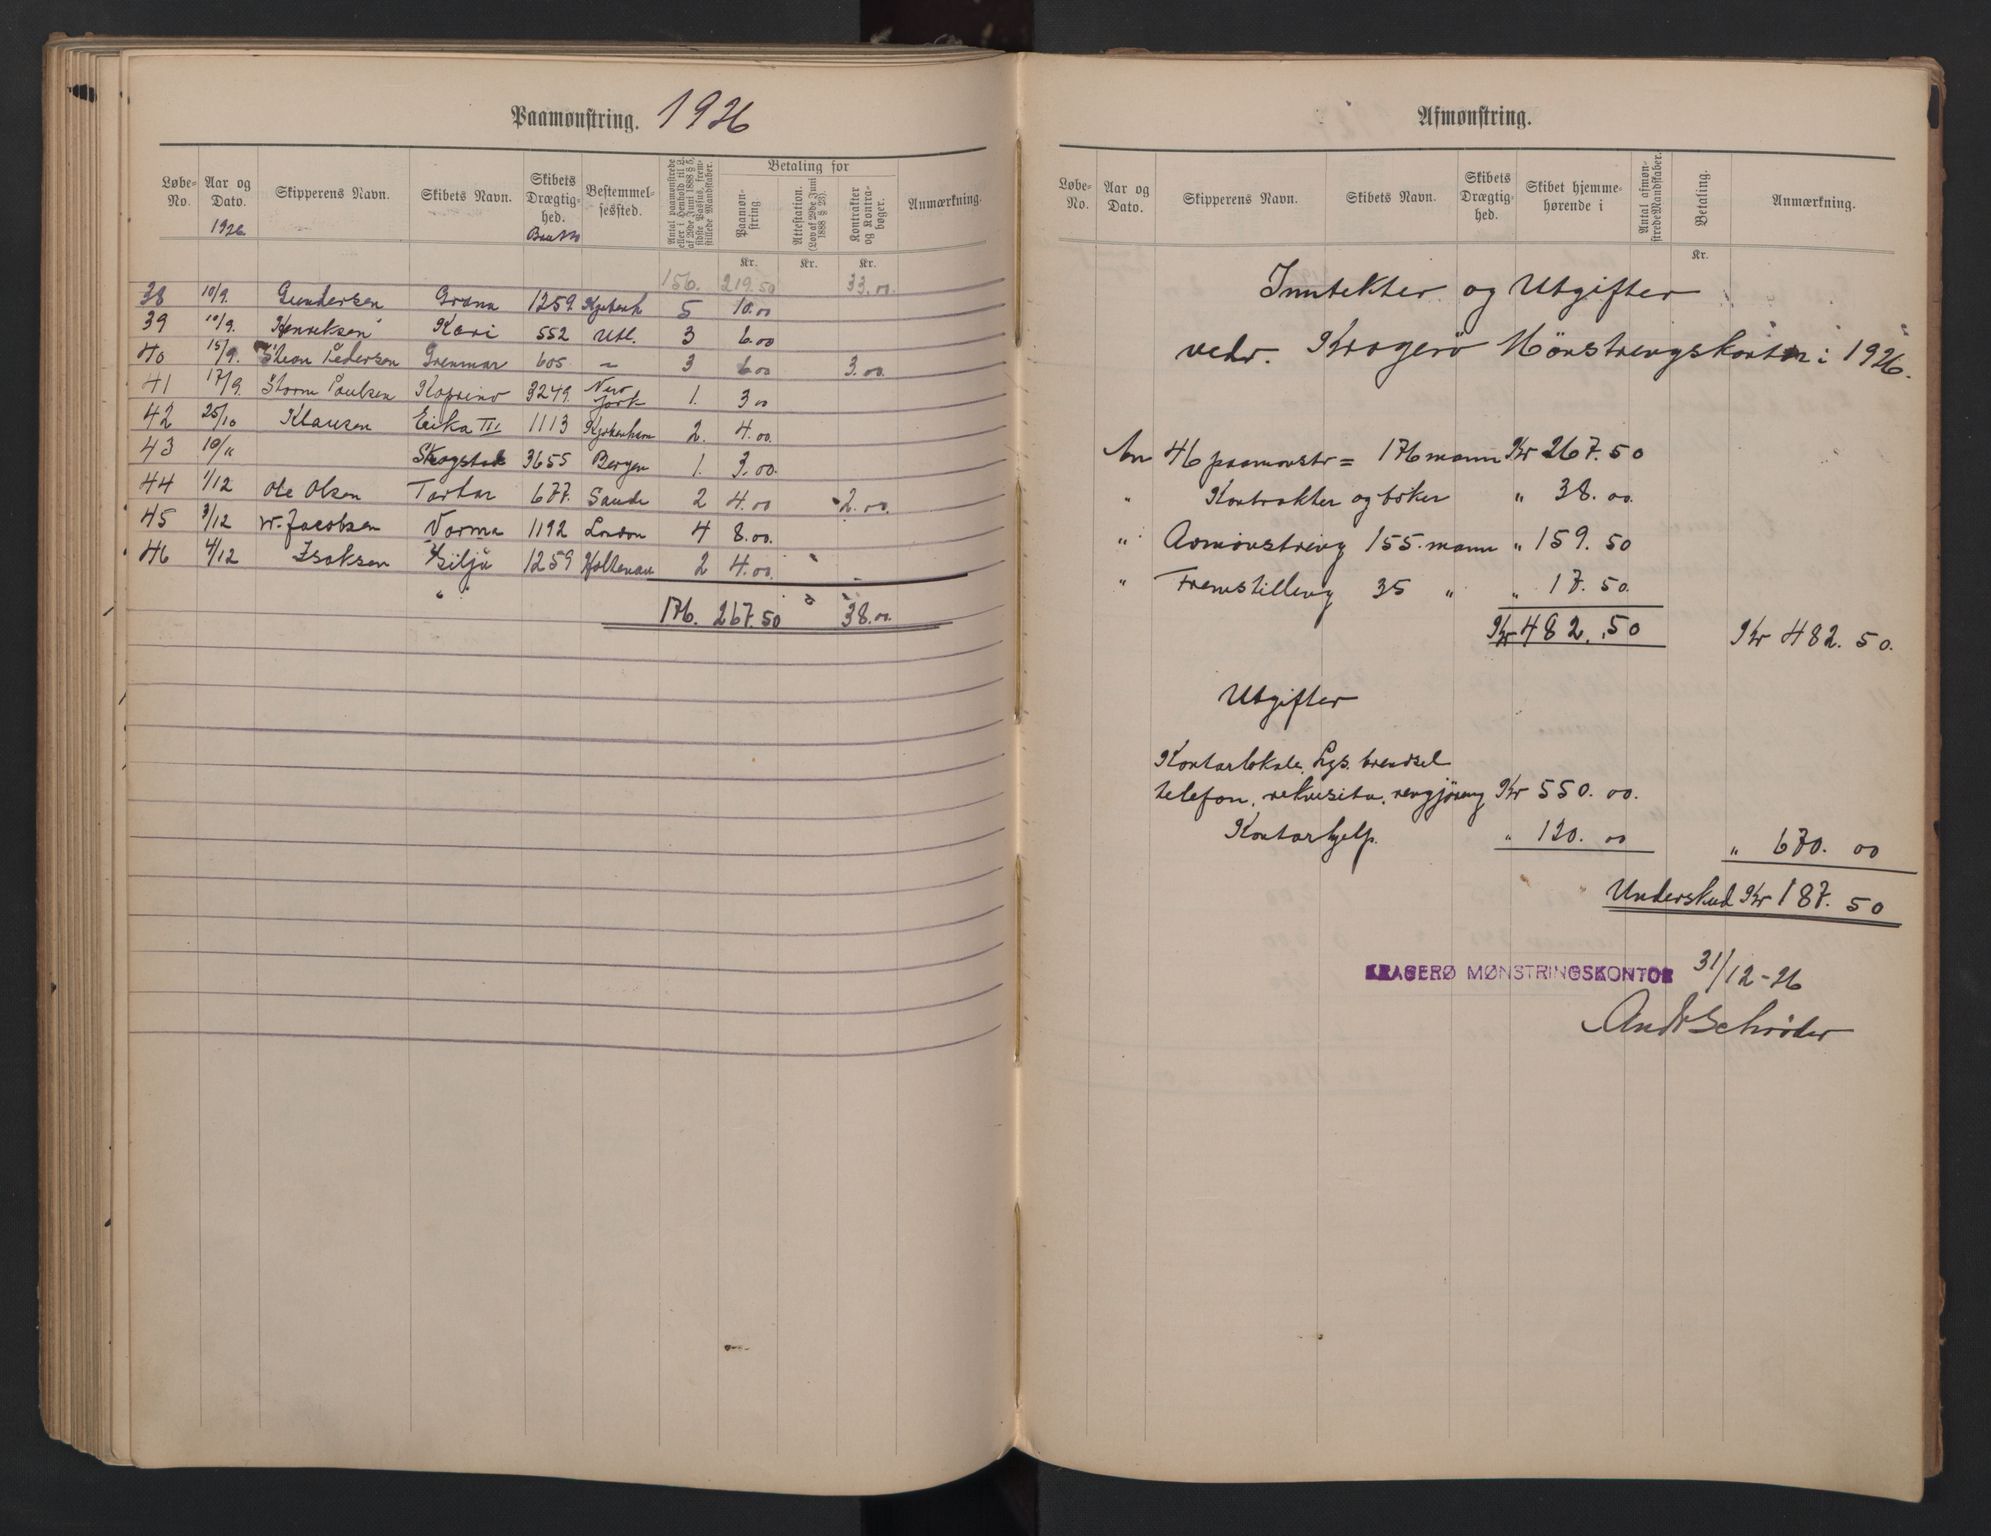 Paamønstring. 1926
Løbe-No. Aar og Dato. Skipperens Navn. Skibets Navn. Skibets Drægtighed. Bestemmelsessted. Antal paamønstrede eller i Henhold til L. af 29de Juni 1888 § 5, sidste Passus, fremstillede Mandskaber. Betaling for Paamønstring. Attestation. (Lov af 29de Juni 1888 § 23). Kontrakter og Kontrabøger. Anmærkning.
1926 Brutto
Kr. Kr. Kr.
156. 219.50 33.00
38 10/9. Gundersen Grana 1259. Kjøbenh 5 10.00
39 10/9. Henriksen Kari 552 Utl. 3 6.00
40 15/9. Pedersen Grenmar 605 — 3 6.00 3.00
41 17/9. Storm Paulsen 3249. New York 1. 3.00
42 25/10 Klausen Eika III 1113 Kjøbenhavn 2. 4.00
43 10/11 Skogstad 3655 Bergen 1. 3.00
44 1/12 Ole Olsen Tartar 677. Sande 2 4.00 2.00
45 3/12 W. Jacobsen Varma 1192 London 4 8.00
46 4/12 Isaksen Gilja 1259 Holtenau 2 4.00
176. 267.50 38.00
Afmønstring.
Løbe-No. Aar og Dato. Skipperens Navn. Skibets Navn. Skibets Drægtighed. Skibet hjemmehørende i Antal afmønstrede Mandskaber. Betaling. Anmærkning.
Kr.
Inntekter og Utgifter
vedr. Kragerö Mönstringskontor i 1926.
An 46 paamönstr = 176 mann Kr 267.50
" Kontrakter og böker " 38.00
" Avmönstring 155. mann " 159.50
" Fremstilling 35 " " 17.50
Kr 482.50 Kr 482.50.
Utgifter
Kontorlokale, Lys. brendsel
telefon, rekvisita, rengjöring Kr 550.00.
Kontorhjelp. " 120.00 " 670.00
Underskud Kr 187.50
KRAGERØ MØNSTRINGSKONTOR 31/12-26
And Schrøder